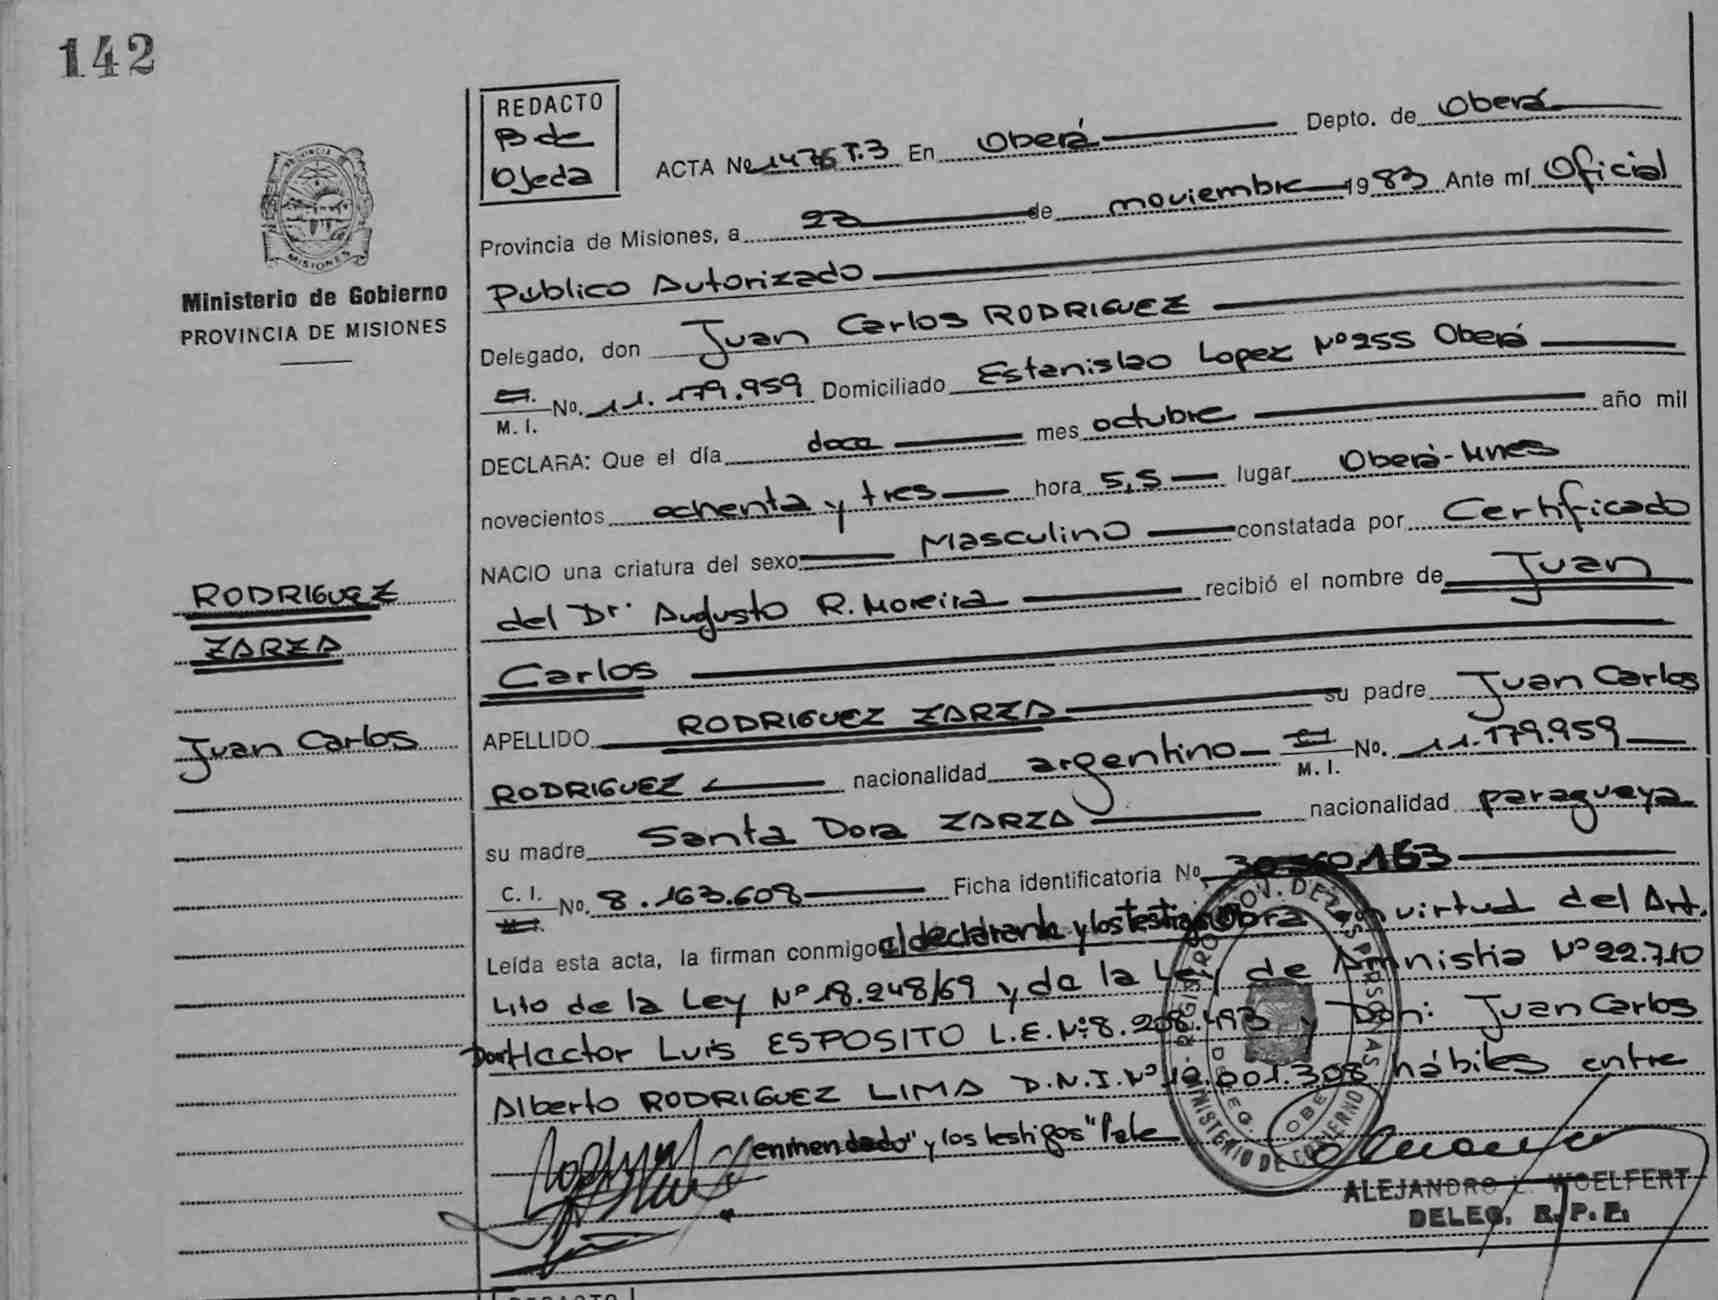 142
REDACTO
B de
Ojeda
ACTA Nº 1476 T.3 En Oberá Depto. de Oberá
Provincia de Misiones, a 22 de moviembre 1983 Ante mí Oficial
Publico Autorizado
Delegado, don Juan Carlos RODRIGUEZ
M. I. No. 11.179.959 Domiciliado Estanislao Lopez Nº 255 Oberá
DECLARA: Que el día doce mes octubre año mil
novecientos ochenta y tres hora 5,5 lugar Oberá-Mnes
NACIO una criatura del sexo Masculino constatada por Certificado
del Dr. Augusto R. Moreira recibió el nombre de Juan
Carlos
APELLIDO RODRIGUEZ ZARZA su padre Juan Carlos
RODRIGUEZ nacionalidad argentino M. I. No. 11.179.959
su madre Santa Dora ZARZA nacionalidad paraguaya
C. I. No. 8.163.608 Ficha identificatoria No. 163
Leída esta acta, la firman conmigo el declarante y los testigos Obra en virtud del Art.
4to de la Ley Nº 18.248/69 y de la Ley de Amnistia Nº 22.710
Don Hector Luis ESPOSITO L.E.Nº 8.208.493 y Don: Juan Carlos
Alberto RODRIGUEZ LIMA D.N.I.Nº 12.001.308 hábiles
enmendado" y los testigos" Vale
entre
ALEJANDRO L. WOELFERT
DELEG. R. P. P.
Ministerio de Gobierno
PROVINCIA DE MISIONES
MISIONES
RODRIGUEZ
ZARZA
Juan Carlos
REDACTO